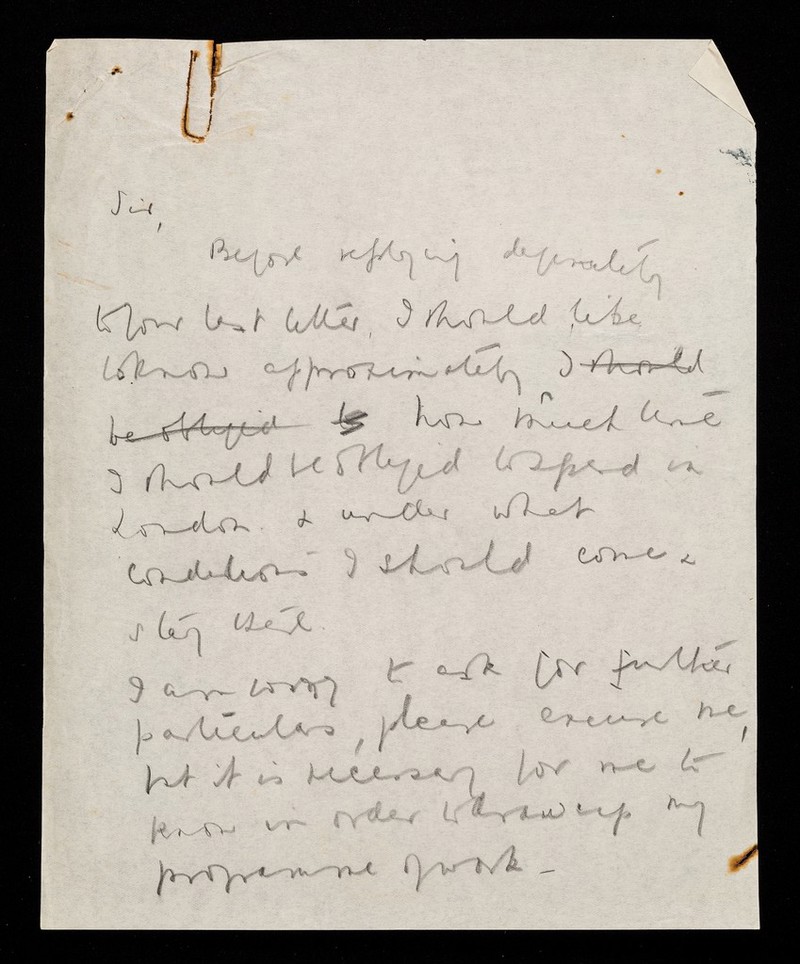 Sir,
Before replying definitely
to your last letter, I should like
to know approximately I should
be obliged to how much time
I should be obliged to spend in
London & under what
conditions I should come &
stay there.
I am sorry to ask for further
particulars, please excuse me,
but it is necessary for me to
know in order to draw up my
programme of work –